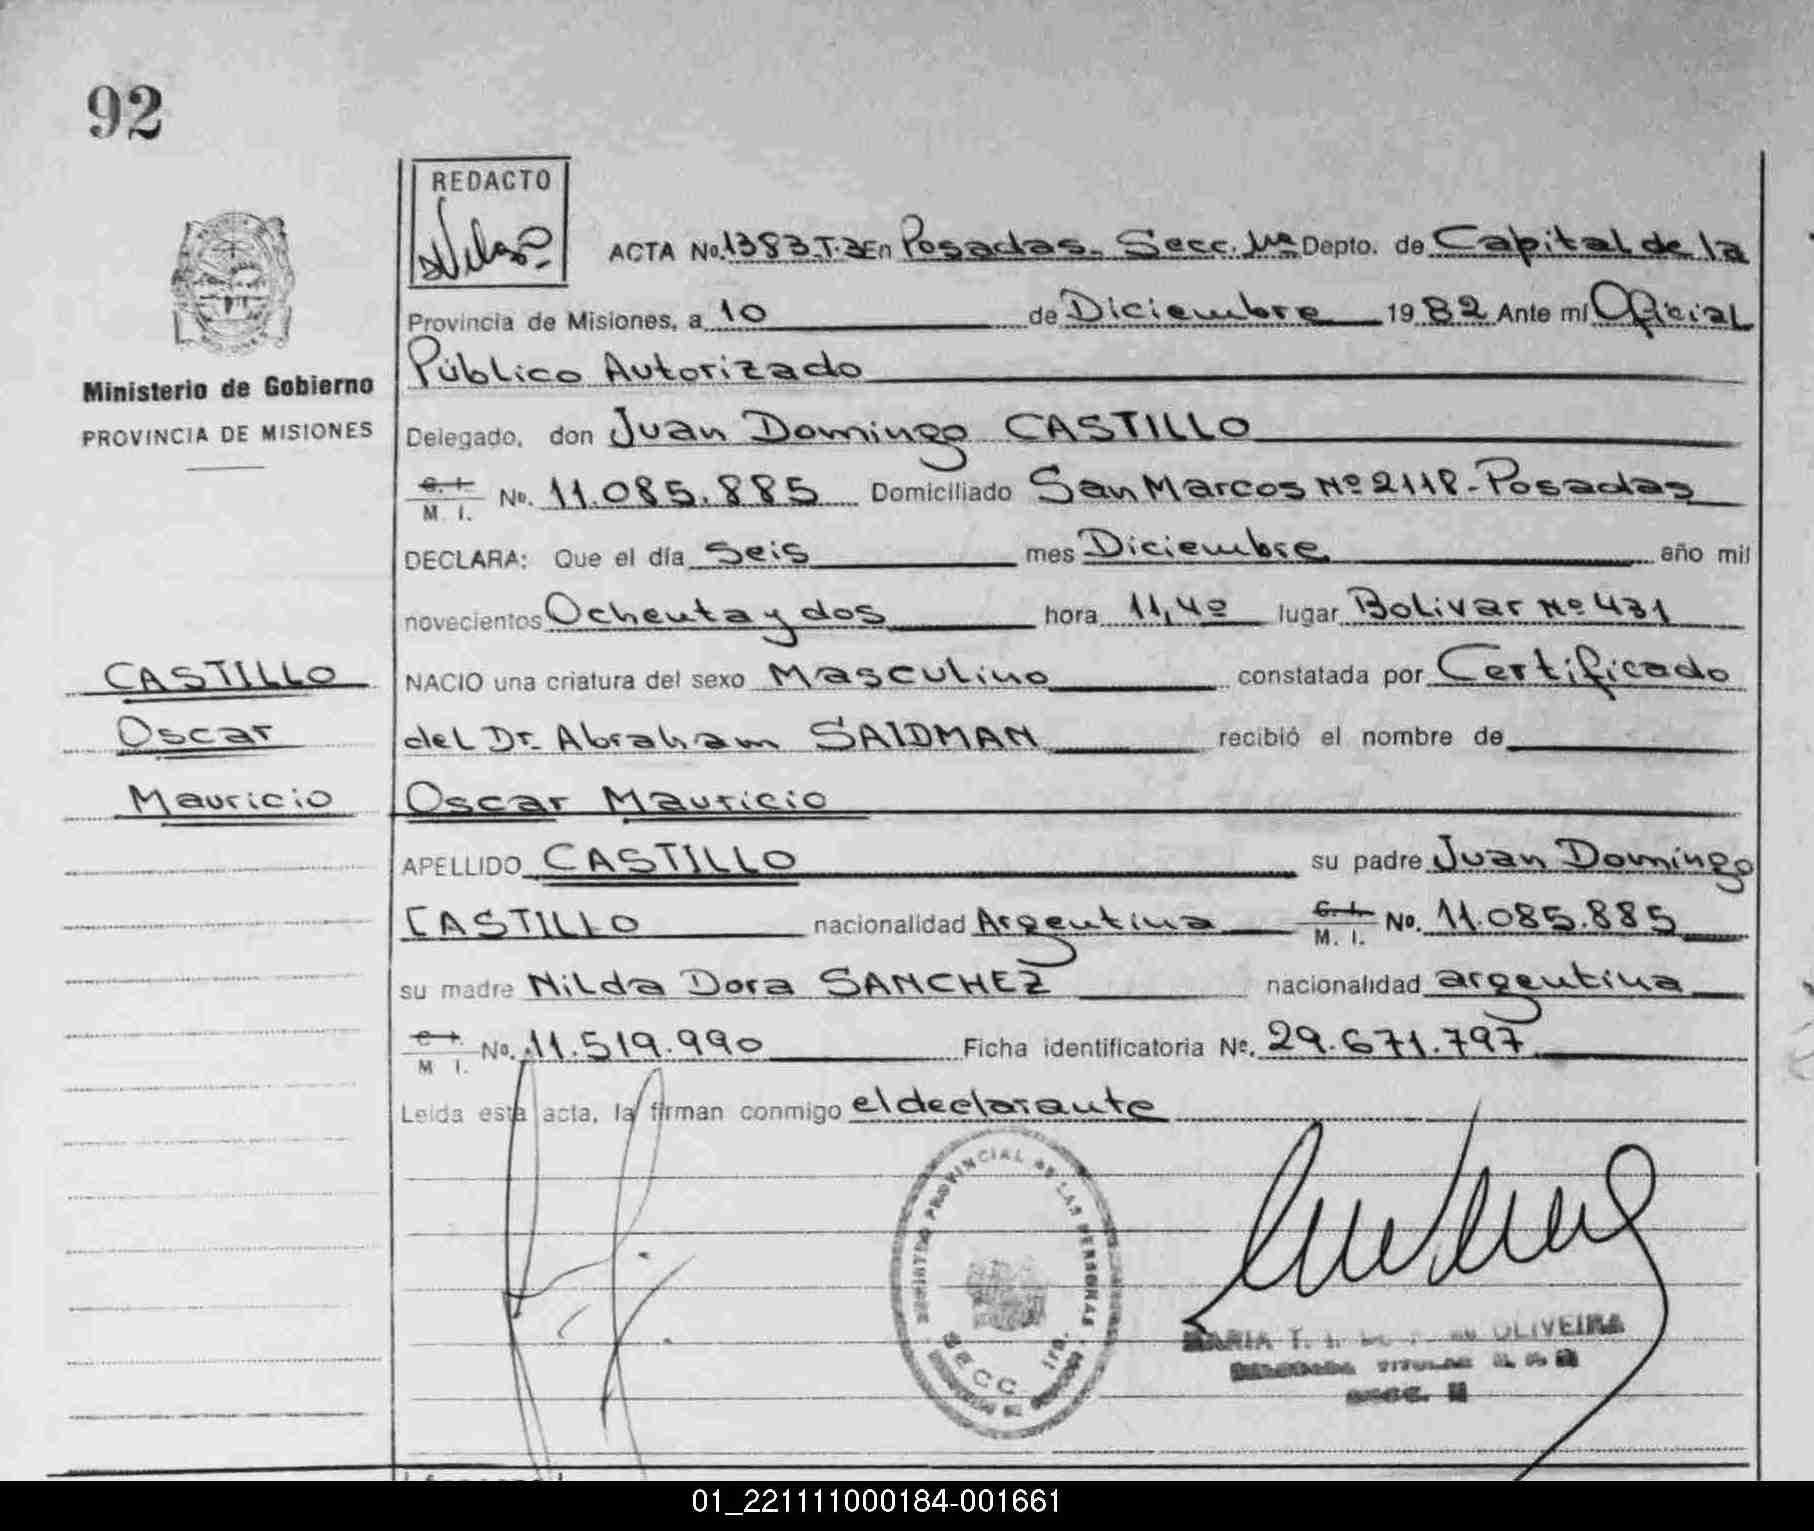 92
REDACTO
ACTA No. 1383.T.3 En Posadas. Secc. 1ra Depto. de Capital de la
Provincia de Misiones, a 10 de Diciembre 1982 Ante mi Oficial
Público Autorizado
Ministerio de Gobierno
PROVINCIA DE MISIONES
Delegado, don Juan Domingo CASTILLO
C. I.
M. I. No. 11.085.885 Domiciliado San Marcos Nº 2118-Posadas
DECLARA: Que el día Seis mes Diciembre año mil
novecientos Ochenta y dos hora 11,40 lugar Bolivar Nº 431
CASTILLO
Oscar
Mauricio
NACIO una criatura del sexo Masculino constatada por Certificado
del Dr. Abraham SAIDMAN recibió el nombre de
Oscar Mauricio
APELLIDO CASTILLO su padre Juan Domingo
CASTILLO nacionalidad Argentina C. I.
M. I. No. 11.085.885
su madre Nilda Dora SANCHEZ nacionalidad argentina
C. I.
M. I. No. 11.519.990 Ficha identificatoria Nº. 29.671.797
Leida esta acta, la firman conmigo el declarante
REGISTRO PROVINCIAL DE LAS PERSONAS
SECC. 1ra.
MARIA T. OLIVEIRA
TITULAR
SECC.
01_221111000184-001661